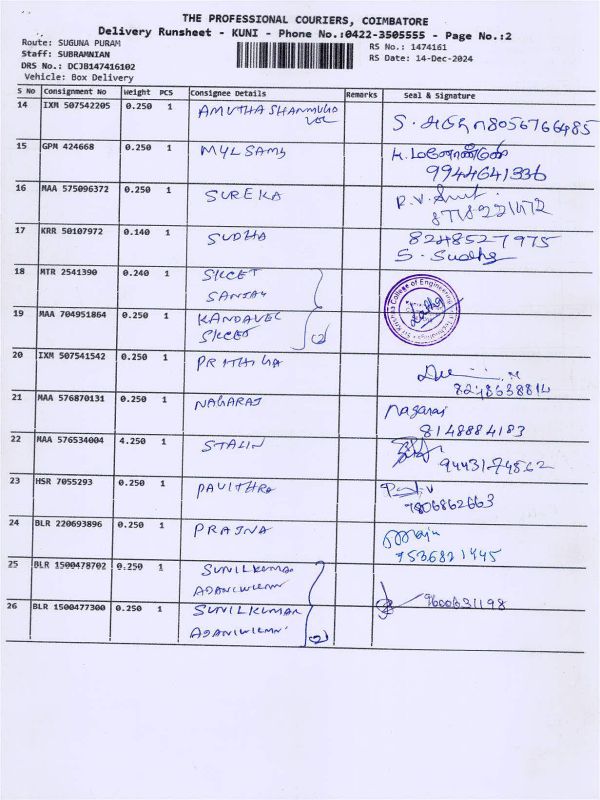 THE PROFESSIONAL COURIERS, COIMBATORE
Delivery Runsheet - KUNI - Phone No.:0422-3505555 - Page No.:2
Route: SUGUNA PURAM
RS No.: 1474161
Staff: SUBRAMNIAN
RS Date: 14-Dec-2024
DRS No.: DCJB147416102
Vehicle: Box Delivery
S No Consignment No Weight PCS Consignee Details Remarks Seal & Signature
14 IXM 507542205 0.250 1 AMUTHA SHANMUGA
VEL
S. 8056766485
15 GPM 424668 0.250 1 MYLSAMY
9944641336
16 MAA 575096372 0.250 1 SUREKA
R.V.
17 KRR 50107972 0.140 1 SUDHA 8248527975
S. Sudha
18 MTR 2541390 0.240 1 SKCET
SANJAY
College of Engineering
19 MAA 704951864 0.250 1 KANDAVEL
SKCET
20 IXM 507541542 0.250 1 PRITHIGA
21 MAA 576870131 0.250 1 NAGARAJ Nagaraj
8148884183
22 MAA 576534004 4.250 1 STALIN
23 HSR 7055293 0.250 1 PAVITHRA
7806862663
24 BLR 220693896 0.250 1 PRAJNA
7536821445
25 BLR 1500478702 0.250 1 SUNILKUMAR
26 BLR 1500477300 0.250 1 SUNILKUMAR 9600631198